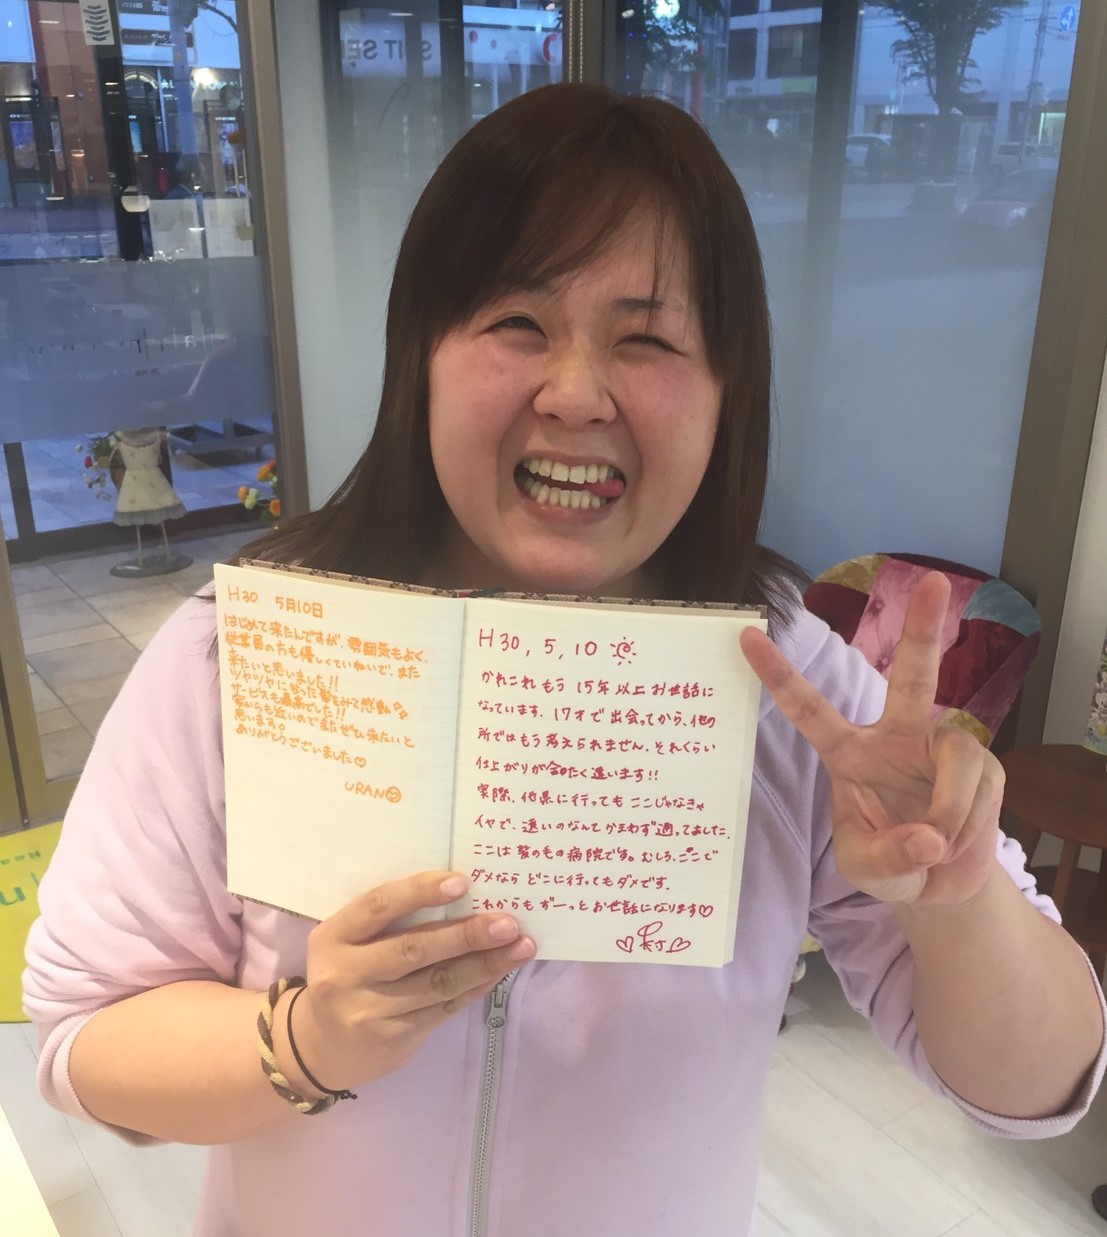 H30 5月10日
はじめて来たんですが、雰囲気もよく、
従業員の方も優しくていねいで、また
来たいと思いました!!
ツヤツヤになった髪をみて感動
サービスも最高でした!!
家からも近いのでまたぜひ来たいと
思います。
ありがとうございました♡
URAN
H30, 5, 10
かれこれもう15年以上お世話に
なっています。17才で出会ってから、他の
所ではもう考えられません。それくらい
仕上がりが全たく違います!!
実際、他県に行ってもここじゃなきゃ
イヤで、遠いのなんてかまわず通ってました。
ここは髪の毛の病院です。むしろ、ここで
ダメならどこに行ってもダメです。
これからもずーっとお世話になります♡